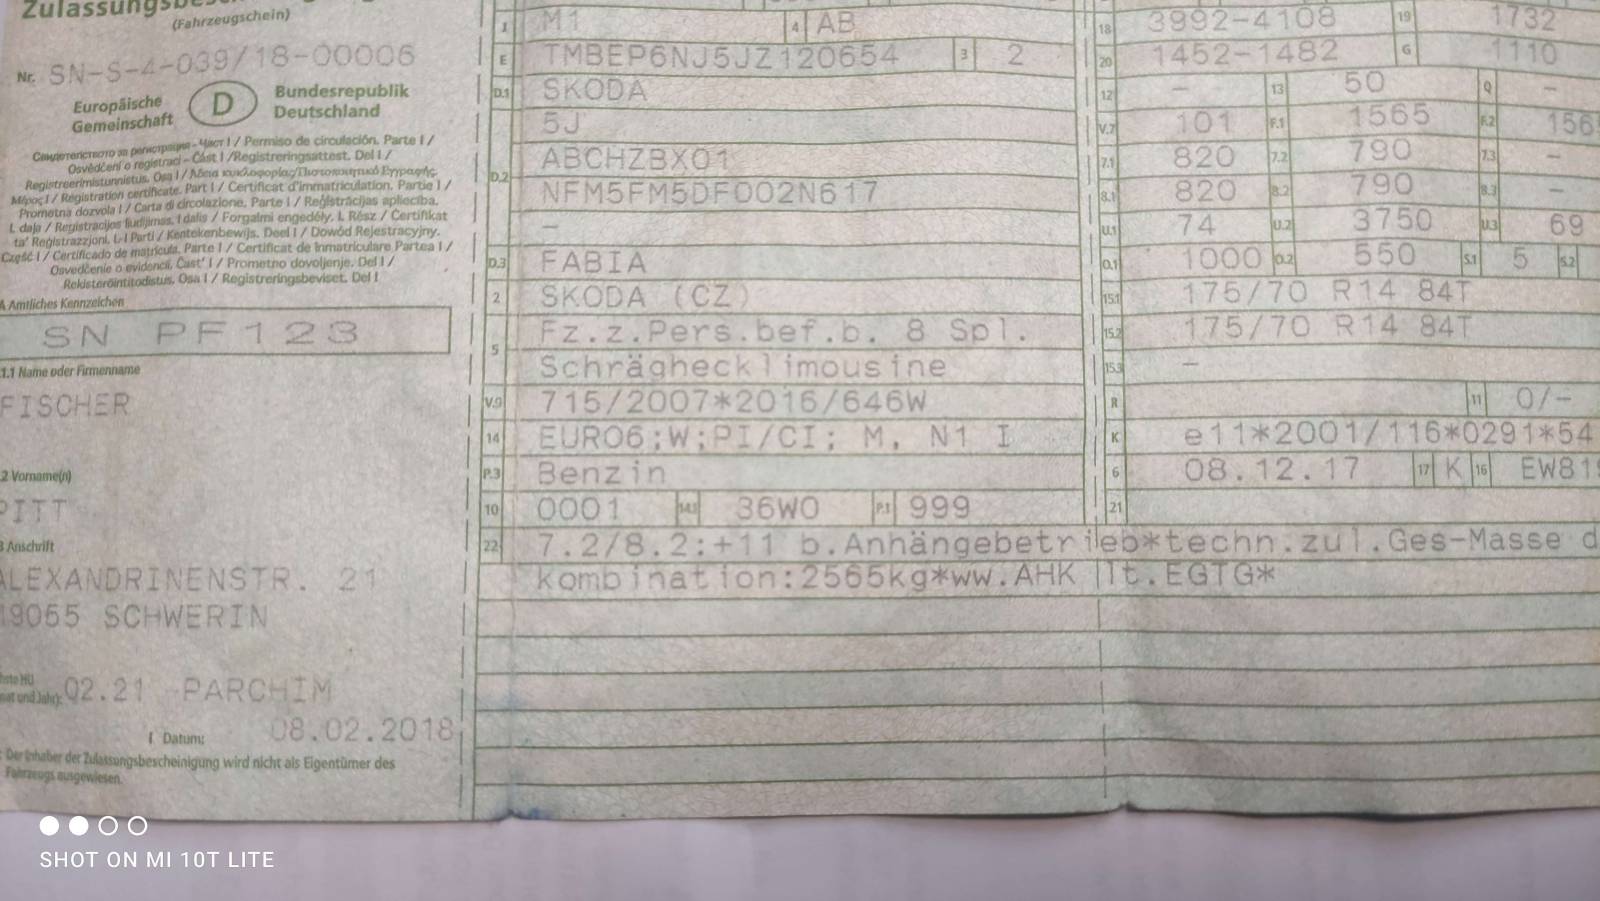 (Fahrzeugschein)
Nr. SN-S-4-039/18-00006
Europäische
Gemeinschaft
D
Bundesrepublik
Deutschland
Свидетелството за регистрация - Част I / Permiso de circulación. Parte I /
Osvědčení o registraci - Část I /Registreringsattest. Del I /
Registreerimistunnistus. Osa I / Άδεια κυκλοφορίας/Πιστοποιητικό Εγγραφής.
Μέρος I / Registration certificate. Part I / Certificat d'immatriculation. Partie I /
Prometna dozvola I / Carta di circolazione. Parte I / Reģistrācijas apliecība.
I. daļa / Registracijos liudijimas. I dalis / Forgalmi engedély. I. Rész / Certifikat
ta' Reġistrazzjoni. L-I Parti / Kentekenbewijs. Deel I / Dowód Rejestracyjny.
Część I / Certificado de matrícula. Parte I / Certificat de înmatriculare Partea I /
Osvedčenie o evidencii. Časť I / Prometno dovoljenje. Del I /
Rekisteröintitodistus. Osa I / Registreringsbeviset. Del I
A Amtliches Kennzeichen
SN PF123
1.1 Name oder Firmenname
FISCHER
.2 Vorname(n)
PITT
3 Anschrift
ALEXANDRINENSTR. 21
19055 SCHWERIN
02.21 PARCHIM
I Datum: 08.02.2018
Der Inhaber der Zulassungsbescheinigung wird nicht als Eigentümer des
Fahrzeugs ausgewiesen.
J M1 4 AB
E TMBEP6NJ5JZ120654 3 2
D.1 SKODA
5J
D.2 ABCHZBX01
NFM5FM5DF002N617
-
D.3 FABIA
2 SKODA (CZ)
5 Fz.z.Pers.bef.b. 8 Spl.
Schräghecklimousine
V.9 715/2007*2016/646W
14 EURO6;W;PI/CI; M, N1 I
P.3 Benzin
10 0001 14.1 36W0 P.1 999
18 3992-4108 19 1732
20 1452-1482 G 1110
12 - 13 50 Q -
V.7 101 F.1 1565 F.2 156
7.1 820 7.2 790 7.3 -
8.1 820 8.2 790 8.3 -
U.1 74 U.2 3750 U.3 69
O.1 1000 O.2 550 S.1 5 S.2
15.1 175/70 R14 84T
15.2 175/70 R14 84T
15.3 -
R 11 0/-
K e11*2001/116*0291*54
6 08.12.17 17 K 16 EW81
21
22 7.2/8.2:+11 b.Anhängebetrieb*techn.zul.Ges-Masse d
kombination:2565kg*ww.AHK lt.EGTG*
SHOT ON MI 10T LITE